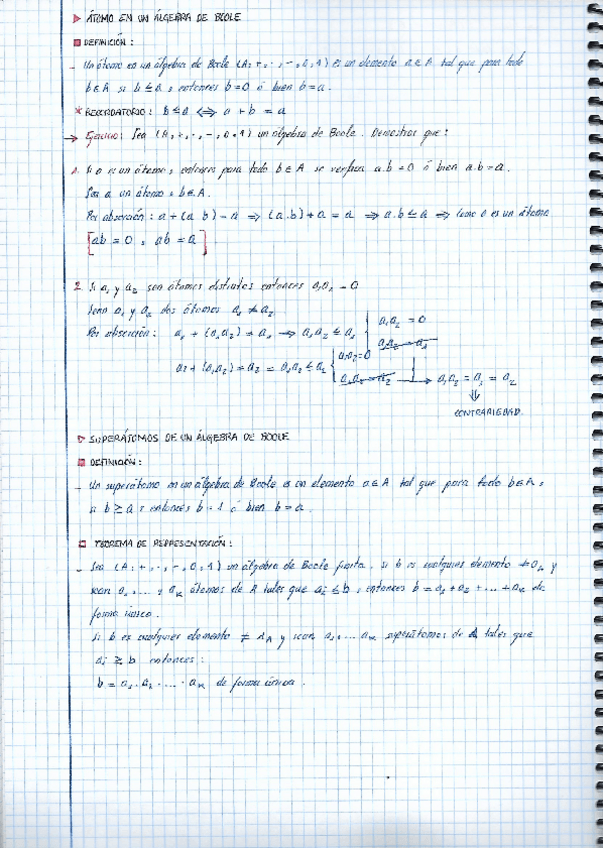 ▷ ÁTOMO EN UN ÁLGEBRA DE BOOLE
DEFINICIÓN:
- Un átomo en un álgebra de Boole (A, +, ·, -, 0, 1) es un elemento a∈A tal que para todo
b∈A si b≤a, entonces b=0 ó bien b=a.
* RECORDATORIO: b≤a ⟺ a+b=a
→ Ejercicio: Sea (A, +, ·, -, 0, 1) un álgebra de Boole. Demostrar que:
1. Si a es un átomo, entonces para todo b∈A se verifica a.b=0 ó bien a.b=a.
Sea a un átomo, b∈A.
Por absorción: a+(a.b)=a ⟹ (a.b)+a=a ⟹ a.b≤a ⟹ Como a es un átomo
[ab=0, ab=a]
2. Si a₁ y a₂ son átomos distintos entonces a₁a₂=0
Sean a₁ y a₂ dos átomos a₁≠a₂.
Por absorción: a₁+(a₁a₂)=a₁ ⟹ a₁a₂≤a₁ { a₁a₂=0
a₁a₂=a₁
a₂+(a₁a₂)=a₂ = a₁a₂≤a₂ { a₁a₂=0
a₁a₂=a₂ → a₁a₂=a₁=a₂
⇓
CONTRARIEDAD.
▷ SUPERÁTOMOS DE UN ÁLGEBRA DE BOOLE
DEFINICIÓN:
- Un superátomo en un álgebra de Boole es un elemento a∈A tal que para todo b∈A,
si b≥a, entonces b=1 ó bien b=a.
TEOREMA DE REPRESENTACIÓN:
- Sea (A, +, ·, -, 0, 1) un álgebra de Boole finita. Si b es cualquier elemento ≠0ₐ y
sean a₁, ..., aₖ átomos de A tales que aᵢ≤b, entonces b=a₁+a₂+...+aₖ de
forma única.
Si b es cualquier elemento ≠1ₐ y sean a₁, ... aₖ superátomos de A tales que
aᵢ≥b entonces:
b=a₁·a₂·...·aₖ de forma única.